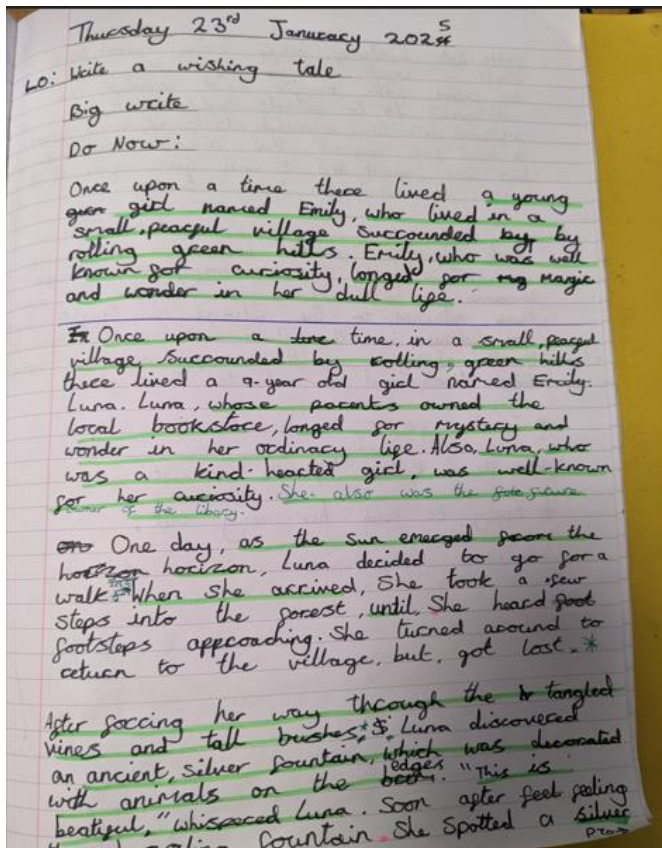 Thursday 23rd January 2025
LO: Write a wishing tale
Big write
Do Now:
Once upon a time there lived a young
girl named Emily, who lived in a
small, peaceful village surrounded by by
rolling green hills. Emily, who was well
known for curiosity, longed for magic
and wonder in her dull life.
Once upon a time, in a small, peacful
village surrounded by rolling, green hills
there lived a 9-year old girl named Emily.
Luna. Luna, whose parents owned the
local bookstore, longed for mystery and
wonder in her ordinary life. Also, Luna, who
was a kind-hearted girl, was well-known
for her curiosity. She also was the
owner of the libary.
One day, as the sun emerged from the
horizon, Luna decided to go for a
walk. When she arrived, She took a few
steps into the forest, until, She heard
footsteps approaching. She turned around to
return to the village, but, got lost. *
After forcing her way through the tangled
vines and tall bushes, Luna discovered
an ancient, silver fountain, which was decorated
with animals on the edges. "This is
beatiful," whispered Luna. Soon after feel feeling
fountain. She spotted a silver